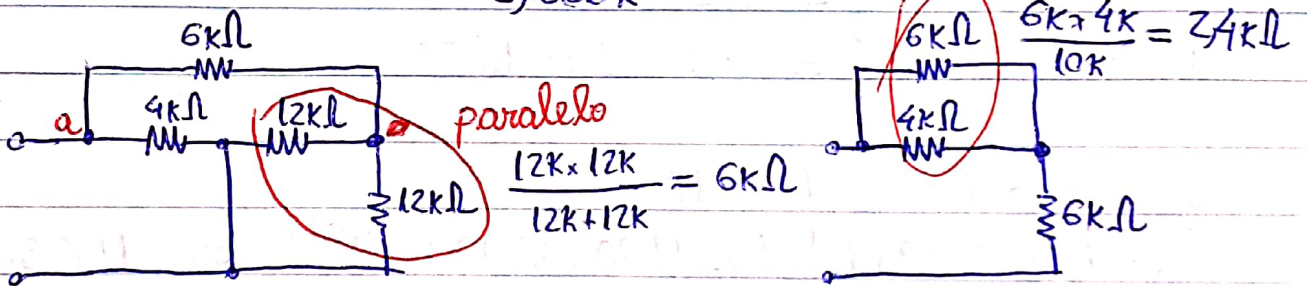 6kΩ
4kΩ
12kΩ
a
paralelo
12k x 12k / 12k+12k = 6kΩ
12kΩ
6kΩ
4kΩ
6k x 4k / 10k = 2,4kΩ
6kΩ